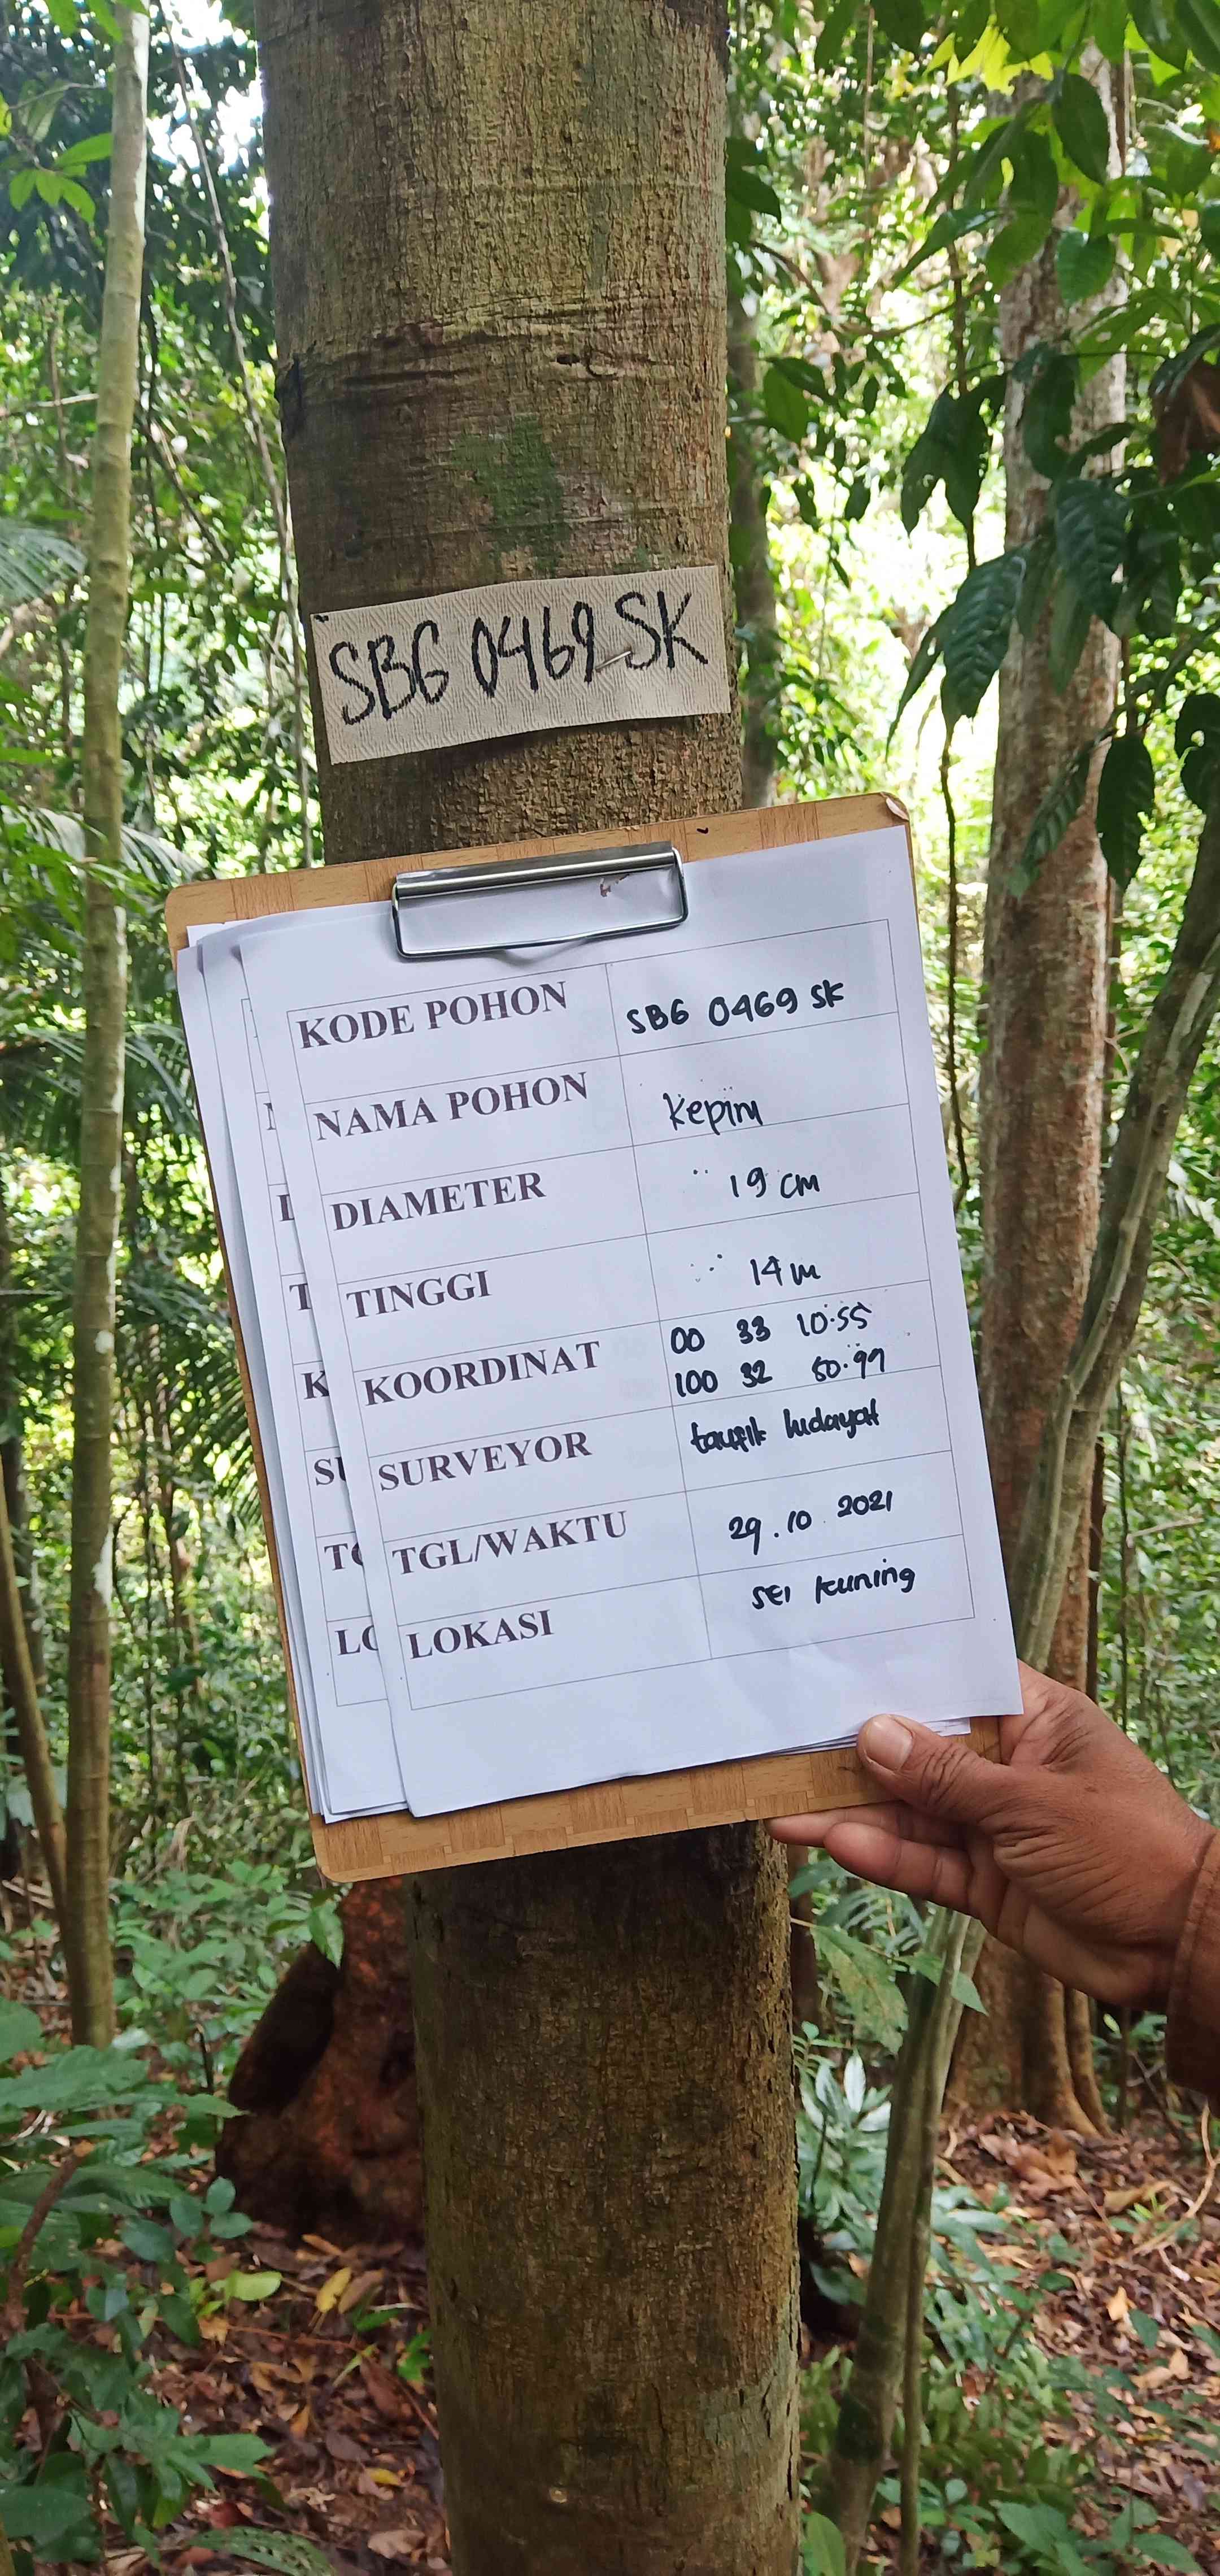 SBG 0469 SK
KODE POHON SBG 0469 SK
NAMA POHON Kepini
DIAMETER 19 cm
TINGGI 14 m
KOORDINAT 00 33 10.55
100 32 50.99
SURVEYOR taufik hidayat
TGL/WAKTU 29.10.2021
LOKASI SEI kuning